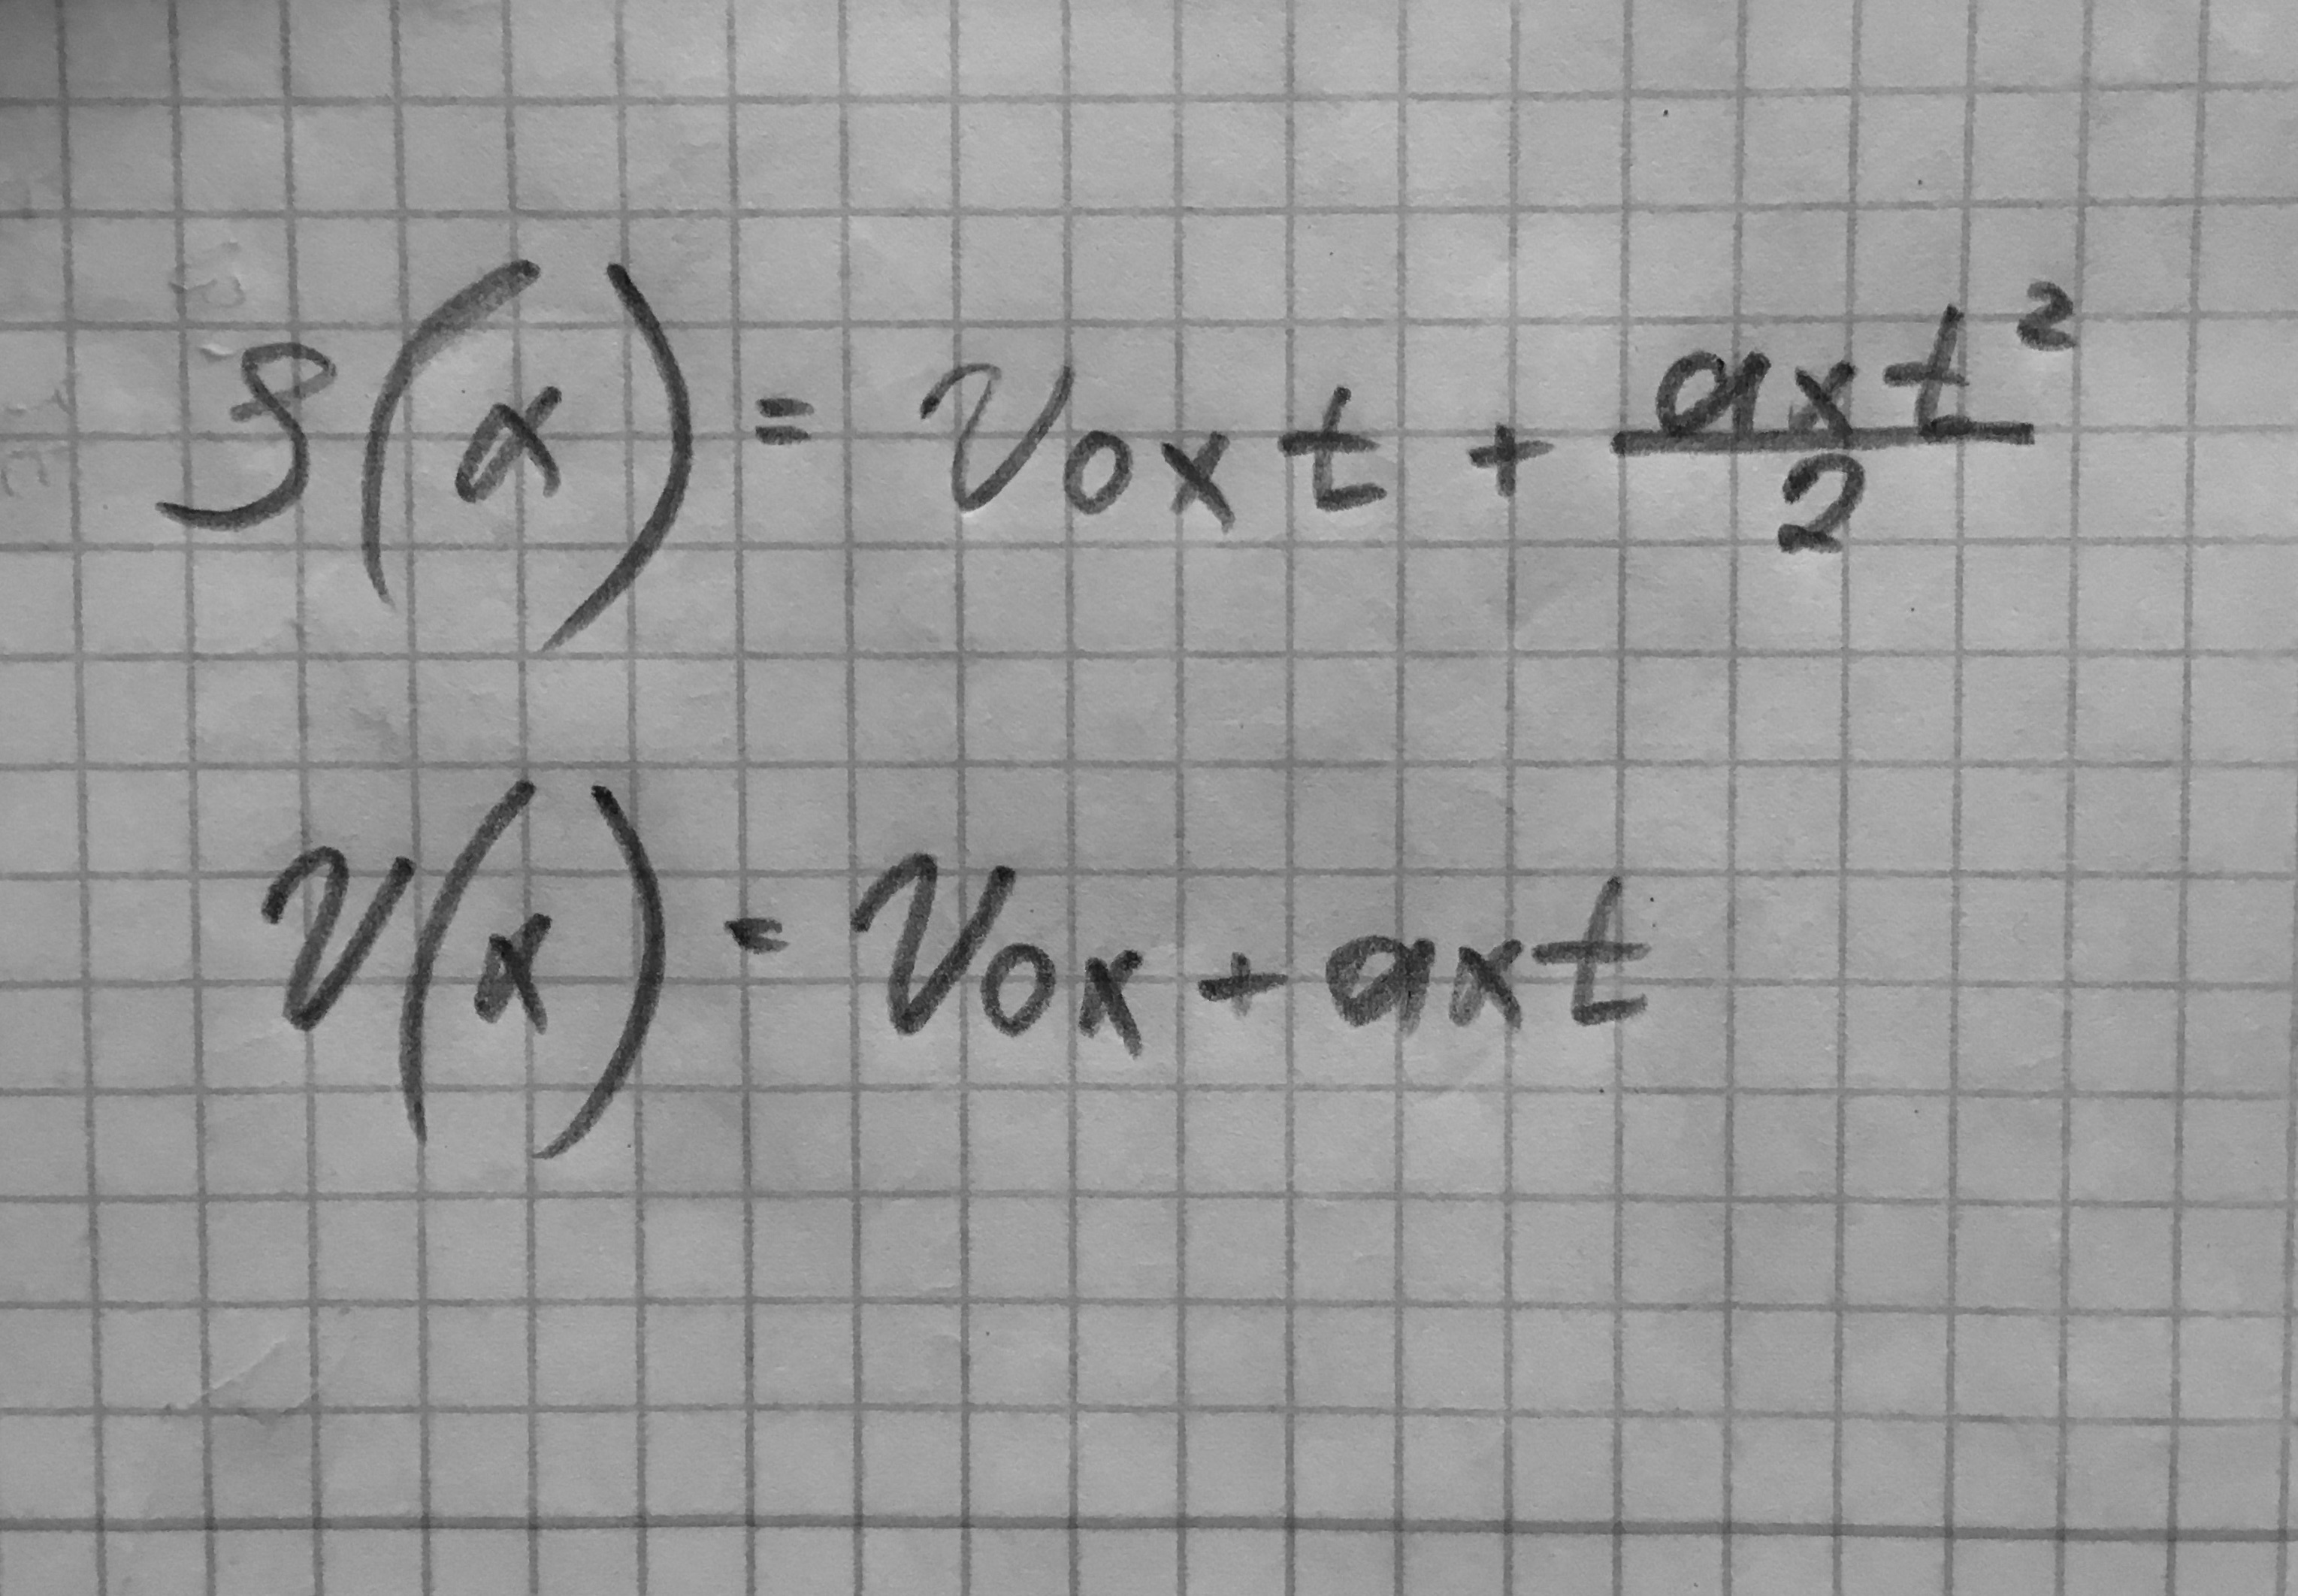 S(x) = v0xt + axt²/2
v(x) = v0x + axt